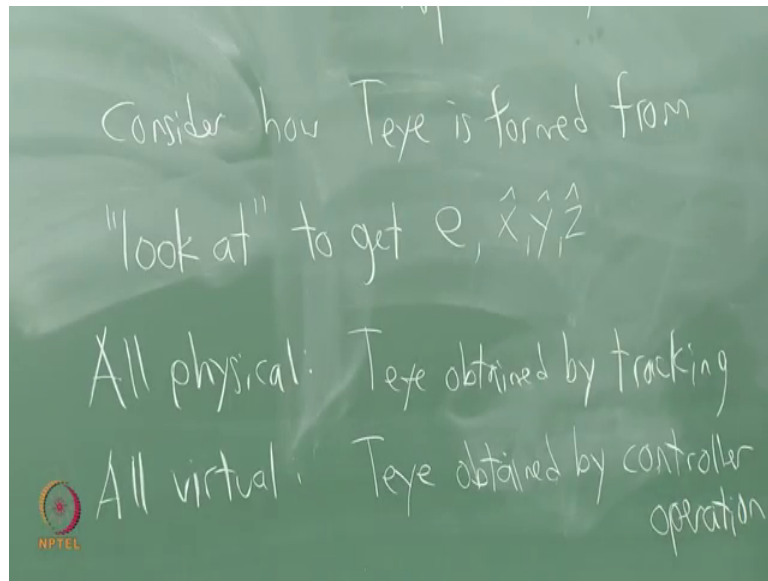 Consider how Teye is formed from
"look at" to get e, x̂, ŷ, ẑ
All physical: Teye obtained by tracking
All virtual: Teye obtained by controller
operation
NPTEL